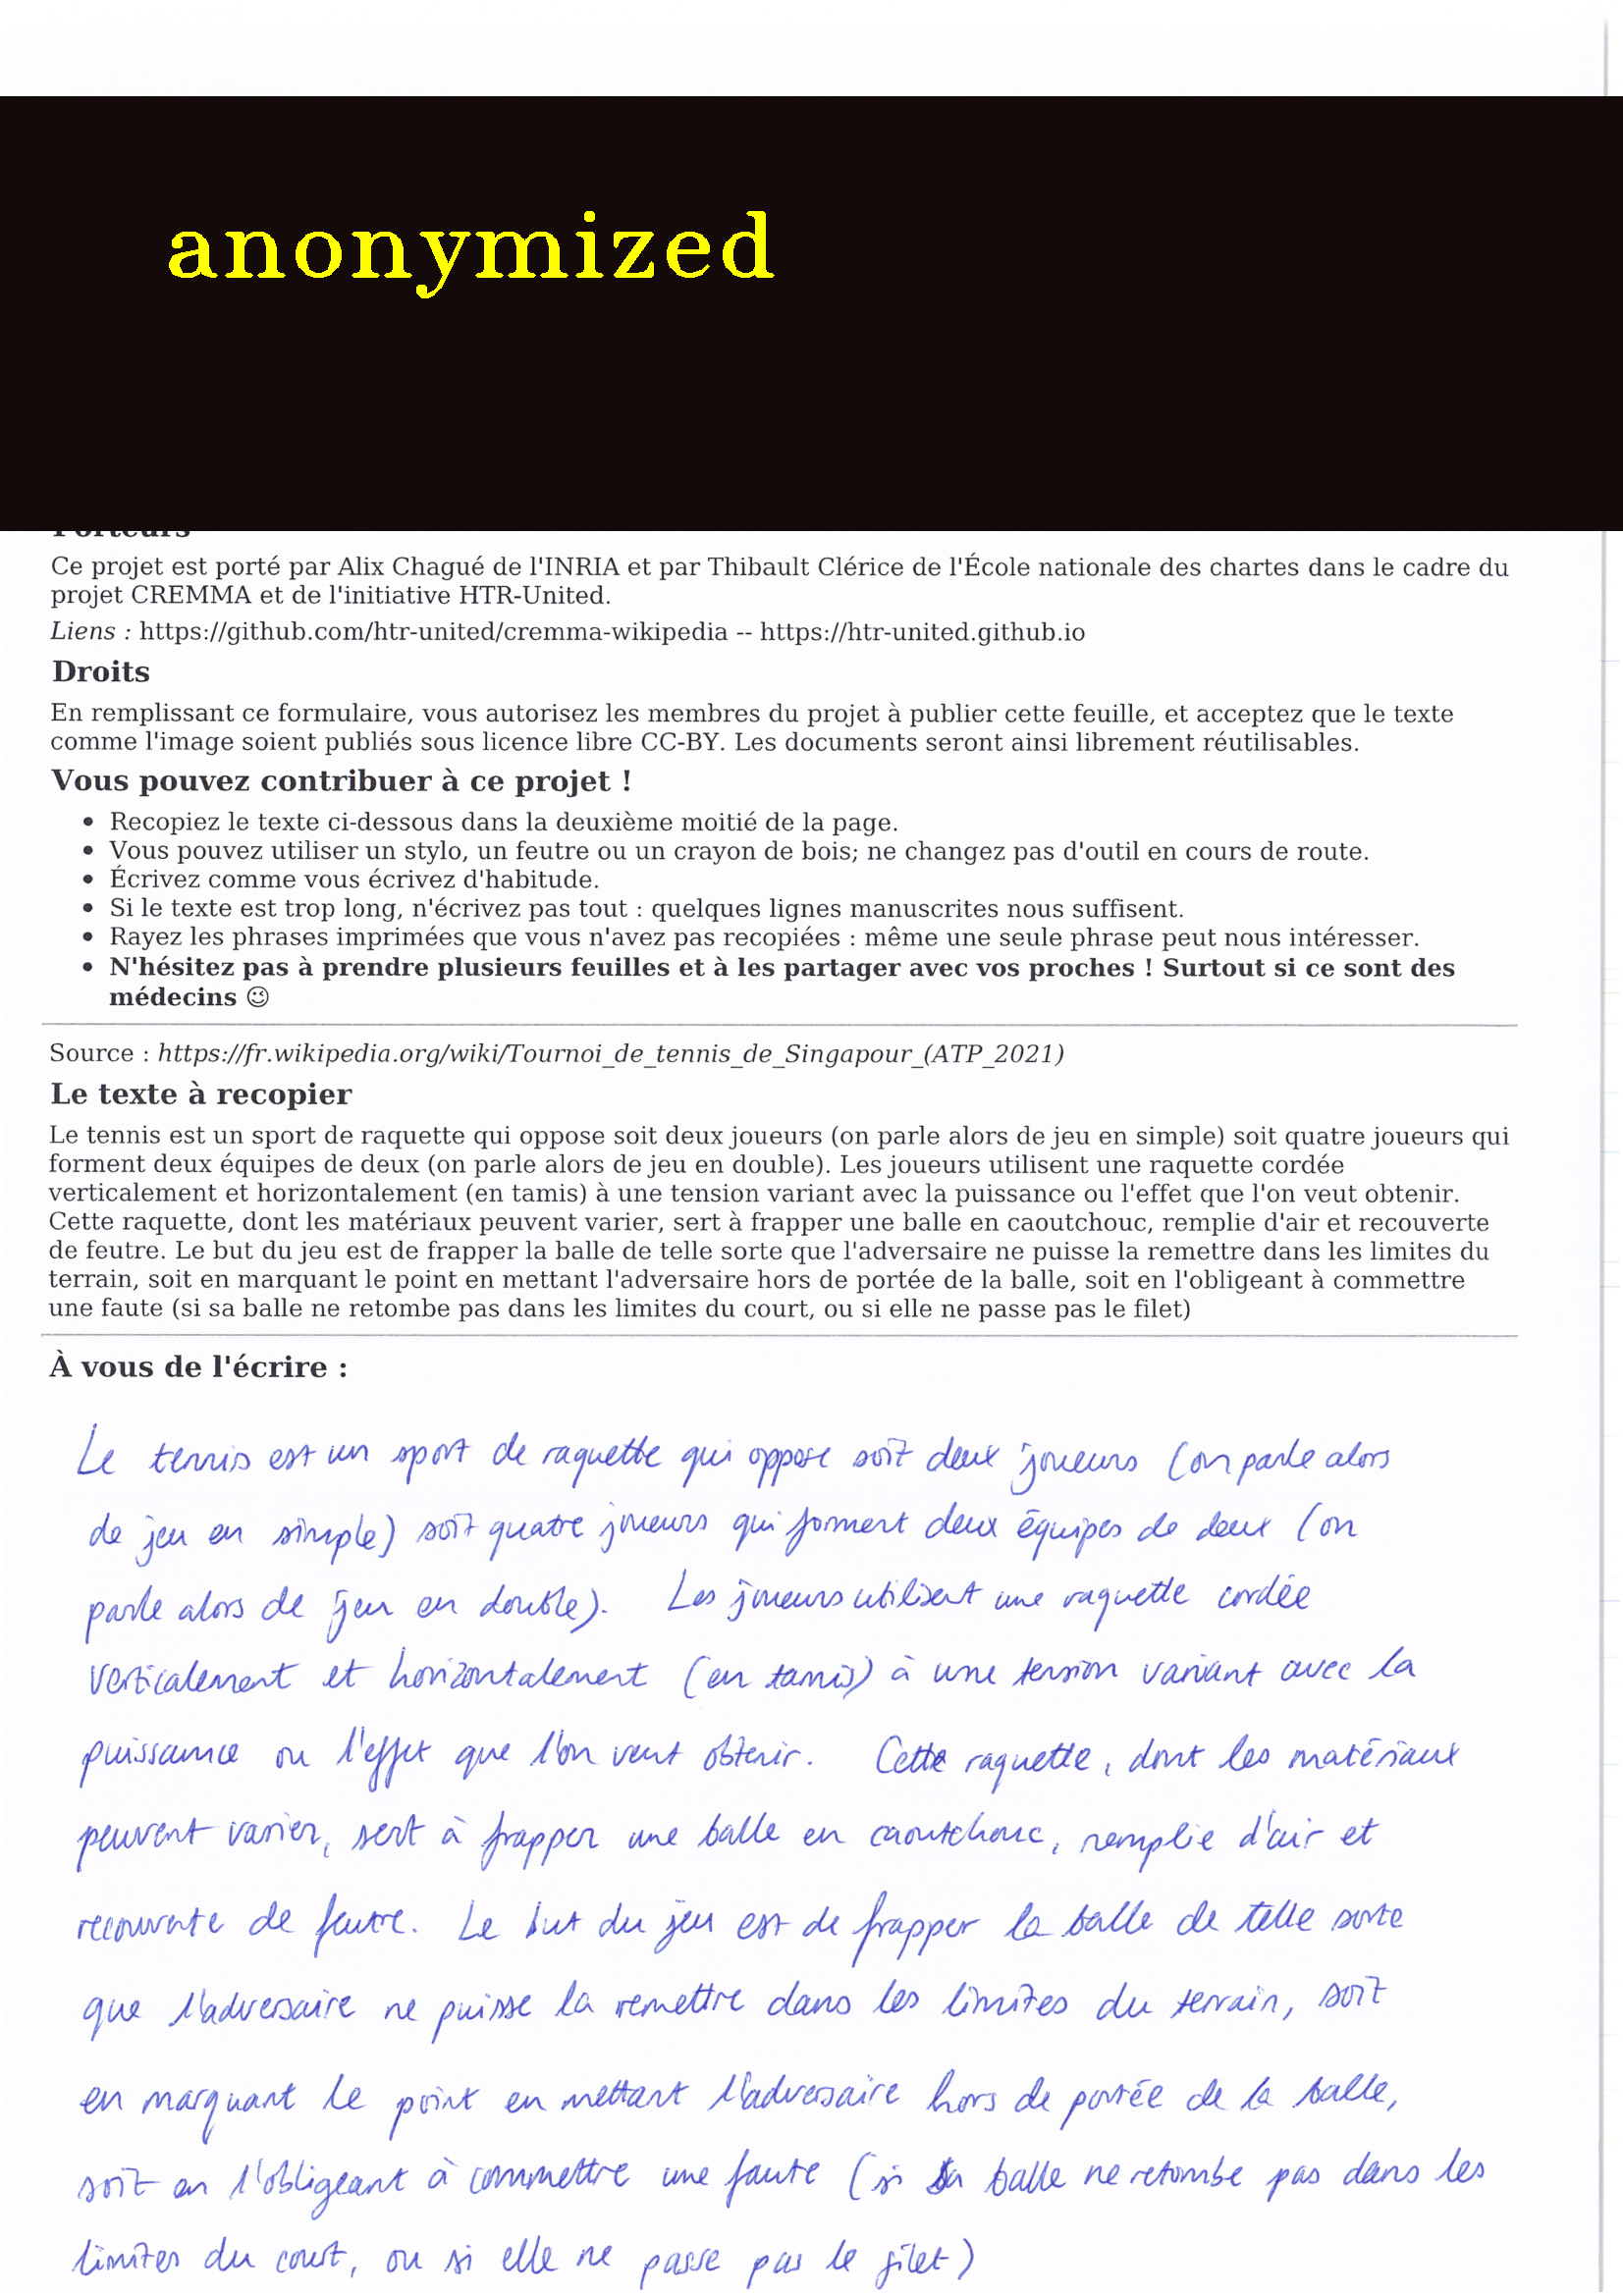 anonymized
Porteurs
Ce projet est porté par Alix Chagué de l'INRIA et par Thibault Clérice de l'École nationale des chartes dans le cadre du
projet CREMMA et de l'initiative HTR-United.
Liens : https://github.com/htr-united/cremma-wikipedia -- https://htr-united.github.io
Droits
En remplissant ce formulaire, vous autorisez les membres du projet à publier cette feuille, et acceptez que le texte
comme l'image soient publiés sous licence libre CC-BY. Les documents seront ainsi librement réutilisables.
Vous pouvez contribuer à ce projet !
• Recopiez le texte ci-dessous dans la deuxième moitié de la page.
• Vous pouvez utiliser un stylo, un feutre ou un crayon de bois; ne changez pas d'outil en cours de route.
• Écrivez comme vous écrivez d'habitude.
• Si le texte est trop long, n'écrivez pas tout : quelques lignes manuscrites nous suffisent.
• Rayez les phrases imprimées que vous n'avez pas recopiées : même une seule phrase peut nous intéresser.
• N'hésitez pas à prendre plusieurs feuilles et à les partager avec vos proches ! Surtout si ce sont des
médecins 😉
Source : https://fr.wikipedia.org/wiki/Tournoi_de_tennis_de_Singapour_(ATP_2021)
Le texte à recopier
Le tennis est un sport de raquette qui oppose soit deux joueurs (on parle alors de jeu en simple) soit quatre joueurs qui
forment deux équipes de deux (on parle alors de jeu en double). Les joueurs utilisent une raquette cordée
verticalement et horizontalement (en tamis) à une tension variant avec la puissance ou l'effet que l'on veut obtenir.
Cette raquette, dont les matériaux peuvent varier, sert à frapper une balle en caoutchouc, remplie d'air et recouverte
de feutre. Le but du jeu est de frapper la balle de telle sorte que l'adversaire ne puisse la remettre dans les limites du
terrain, soit en marquant le point en mettant l'adversaire hors de portée de la balle, soit en l'obligeant à commettre
une faute (si sa balle ne retombe pas dans les limites du court, ou si elle ne passe pas le filet)
À vous de l'écrire :
Le tennis est un sport de raquette qui oppose soit deux joueurs (on parle alors
de jeu en simple) soit quatre joueurs qui forment deux équipes de deux (on
parle alors de jeu en double). Les joueurs utilisent une raquette cordée
verticalement et horizontalement (en tamis) à une tension variant avec la
puissance ou l'effet que l'on veut obtenir. Cette raquette, dont les matériaux
peuvent varier, sert à frapper une balle en caoutchouc, remplie d'air et
recouverte de feutre. Le but du jeu est de frapper la balle de telle sorte
que l'adversaire ne puisse la remettre dans les limites du terrain, soit
en marquant le point en mettant l'adversaire hors de portée de la balle,
soit en l'obligeant à commettre une faute (si sa balle ne retombe pas dans les
limites du court, ou si elle ne passe pas le filet)